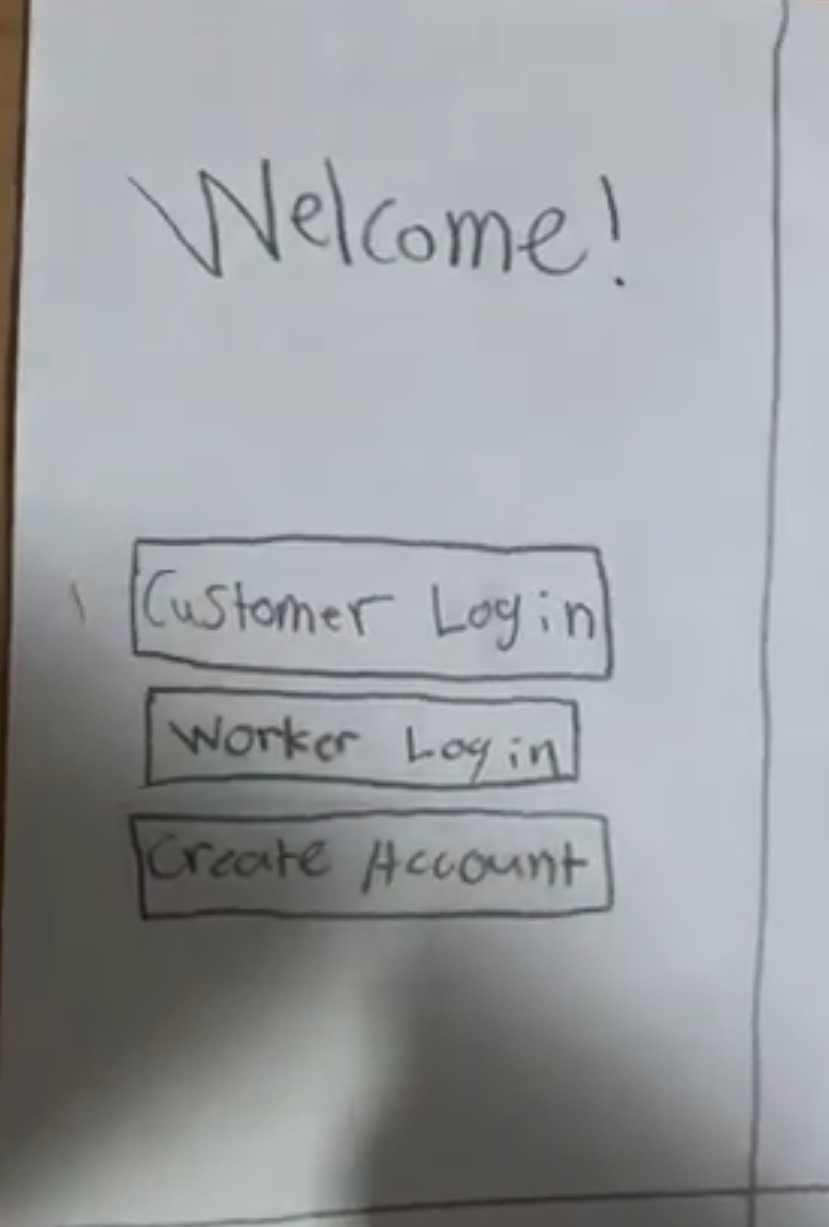 Welcome!
Customer Login
Worker Login
Create Account